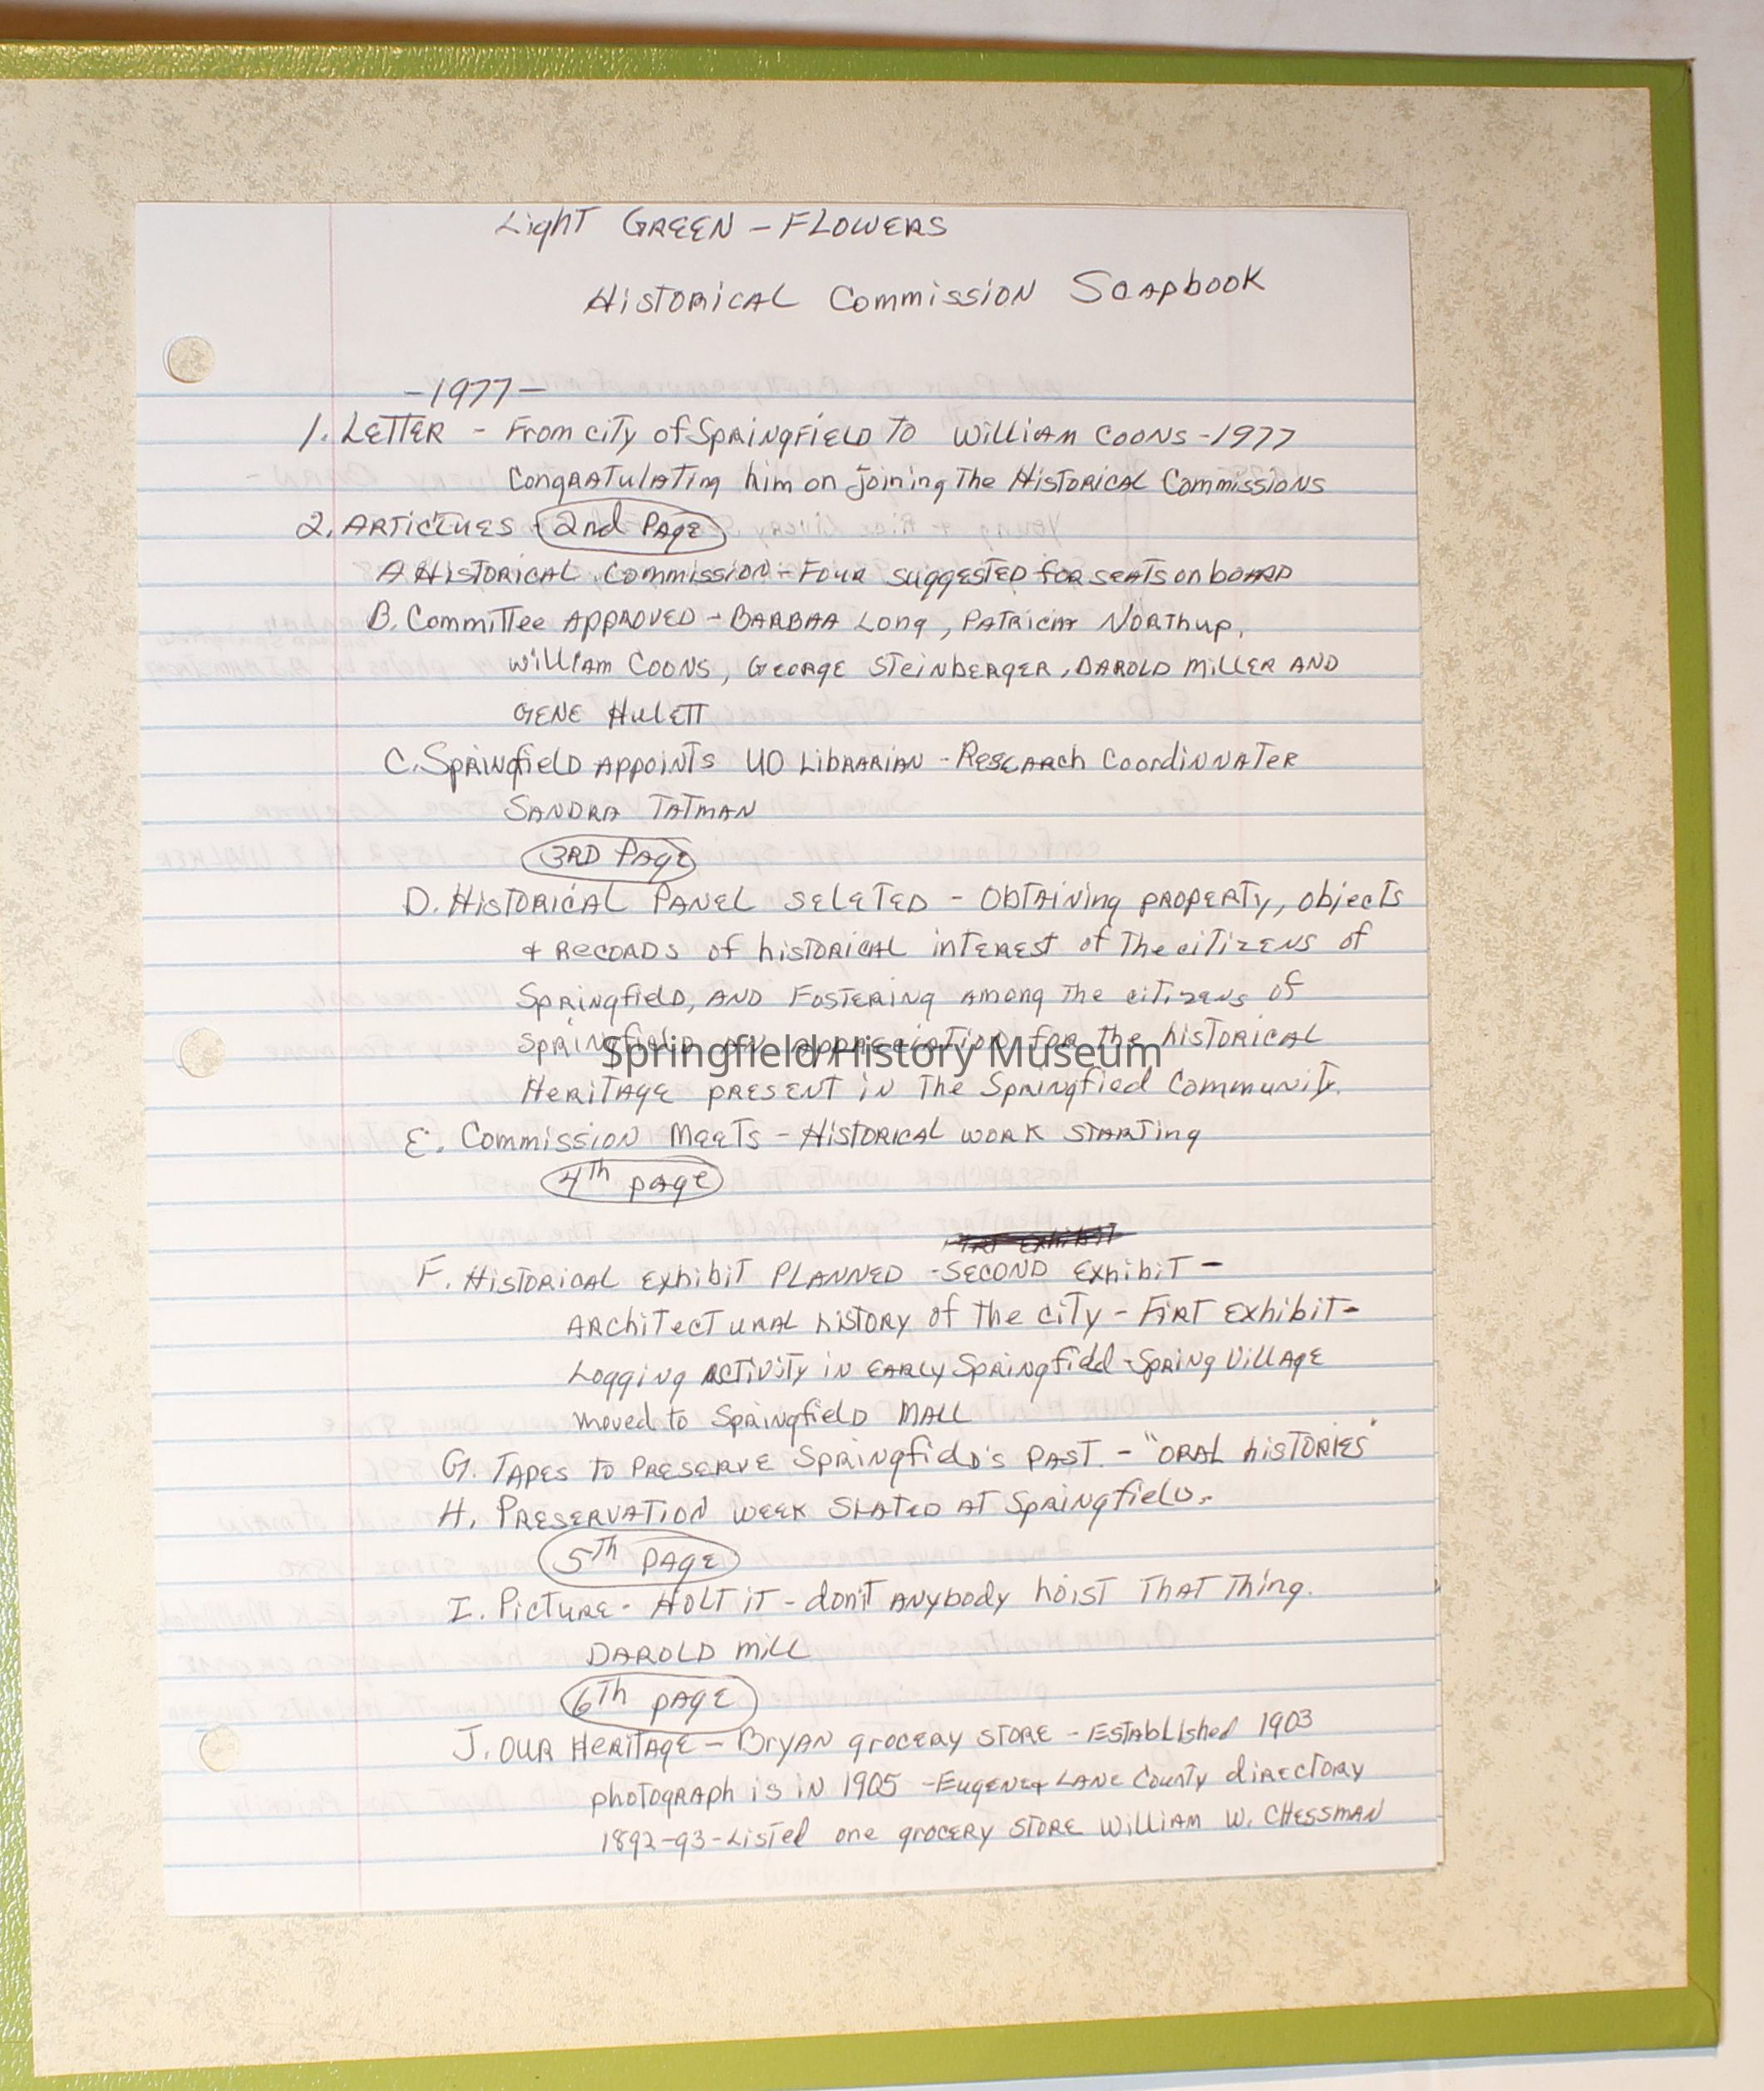 Light GREEN - FLOWERS
Historical Commission Scapbook
-1977-
1. LETTER - From city of Springfield to William Coons - 1977
Congratulating him on joining the Historical Commissions
2. Articlues - 2nd Page
A Historical Commission - Four suggested for seats on board
B. Committee Approved - Barbaa Long, Patricia Northup,
William Coons, George Steinberger, Darold Miller and
Gene Hulett
C. Springfield appoints UO Librarian - Research Coordinnater
Sandra Tatman
3rd Page
D. Historical Panel seleted - Obtaining property, objects
+ records of historical interest of the citizens of
Springfield, and Fostering among the citizens of
Springfield an appreciation for the historical
Springfield History Museum
Heritage present in the Springfied Community.
E. Commission Meets - Historical work starting
4th page
F. Historical exhibit planned - Second exhibit -
Architectural history of the city - Firt exhibit -
Logging activity in early Springfield - Spring Village
moved to Springfield Mall
G. Tapes to preserve Springfield's past. - "oral histories"
H. Preservation week slated at Springfield.
5th page
I. Picture - Holt it - don't anybody hoist that thing.
Darold Mill
6th page
J. Our Heritage - Bryan grocery store - Established 1903
photograph is in 1905 - Eugene + Lane County directory
1892-93 - Listed one grocery store William W. Chessman